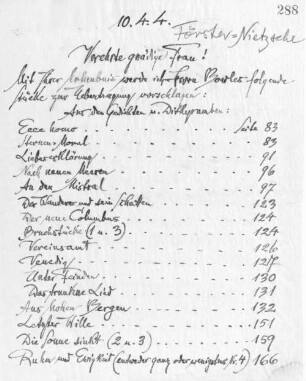 288
10.4.4.
Förster=Nietzsche
Verehrte gnädige Frau!
Mit Ihrer Erlaubnis werde ich Herrn Bowles folgende
Stücke zur Uebertragung vorschlagen:
Aus den Gedichten u. Dithyramben:
Ecce homo . . . Seite 83
Sternen-Moral . . . 83
Liebeserklärung . . . 91
Nach neuen Meeren . . . 96
An den Mistral . . . 97
Der Wanderer und sein Schatten . . . 123
Der neue Columbus . . . 124
Bruchstücke (1 u. 3) . . . 124
Vereinsamt . . . 126
Venedig . . . 127
Unter Feinden . . . 130
Das trunkene Lied . . . 131
Aus hohen Bergen . . . 132
Letzter Wille . . . 151
Die Sonne sinkt (2 u. 3) . . . 159
Ruhm und Ewigkeit (entweder ganz oder wenigstens Nr. 4) 166